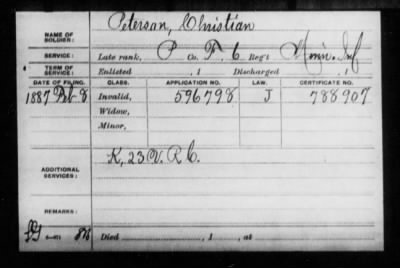 Peterson, Christian
NAME OF SOLDIER:
SERVICE: Late rank, P Co. F, 6 Reg't Minn. Inf
TERM OF SERVICE: Enlisted , 1 Discharged , 1
DATE OF FILING. CLASS. APPLICATION NO. LAW. CERTIFICATE NO.
1887 Feb 8 Invalid, 596798 J 788907
Widow,
Minor,
K, 23 V. R. C.
ADDITIONAL SERVICES:
REMARKS:
Died , 1 , at